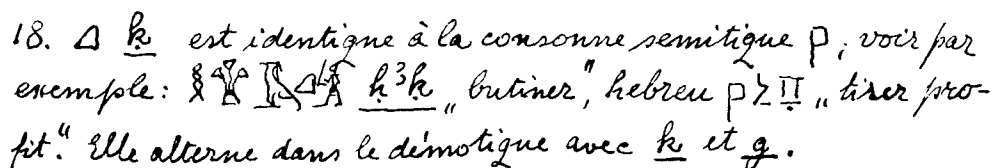 18. 𓈎 ḳ est identique à la consonne semitique ק; voir par
exemple: ḥ³ḳ „butiner", hebreu חלק „tirer pro-
fit." Elle alterne dans le démotique avec k et g.